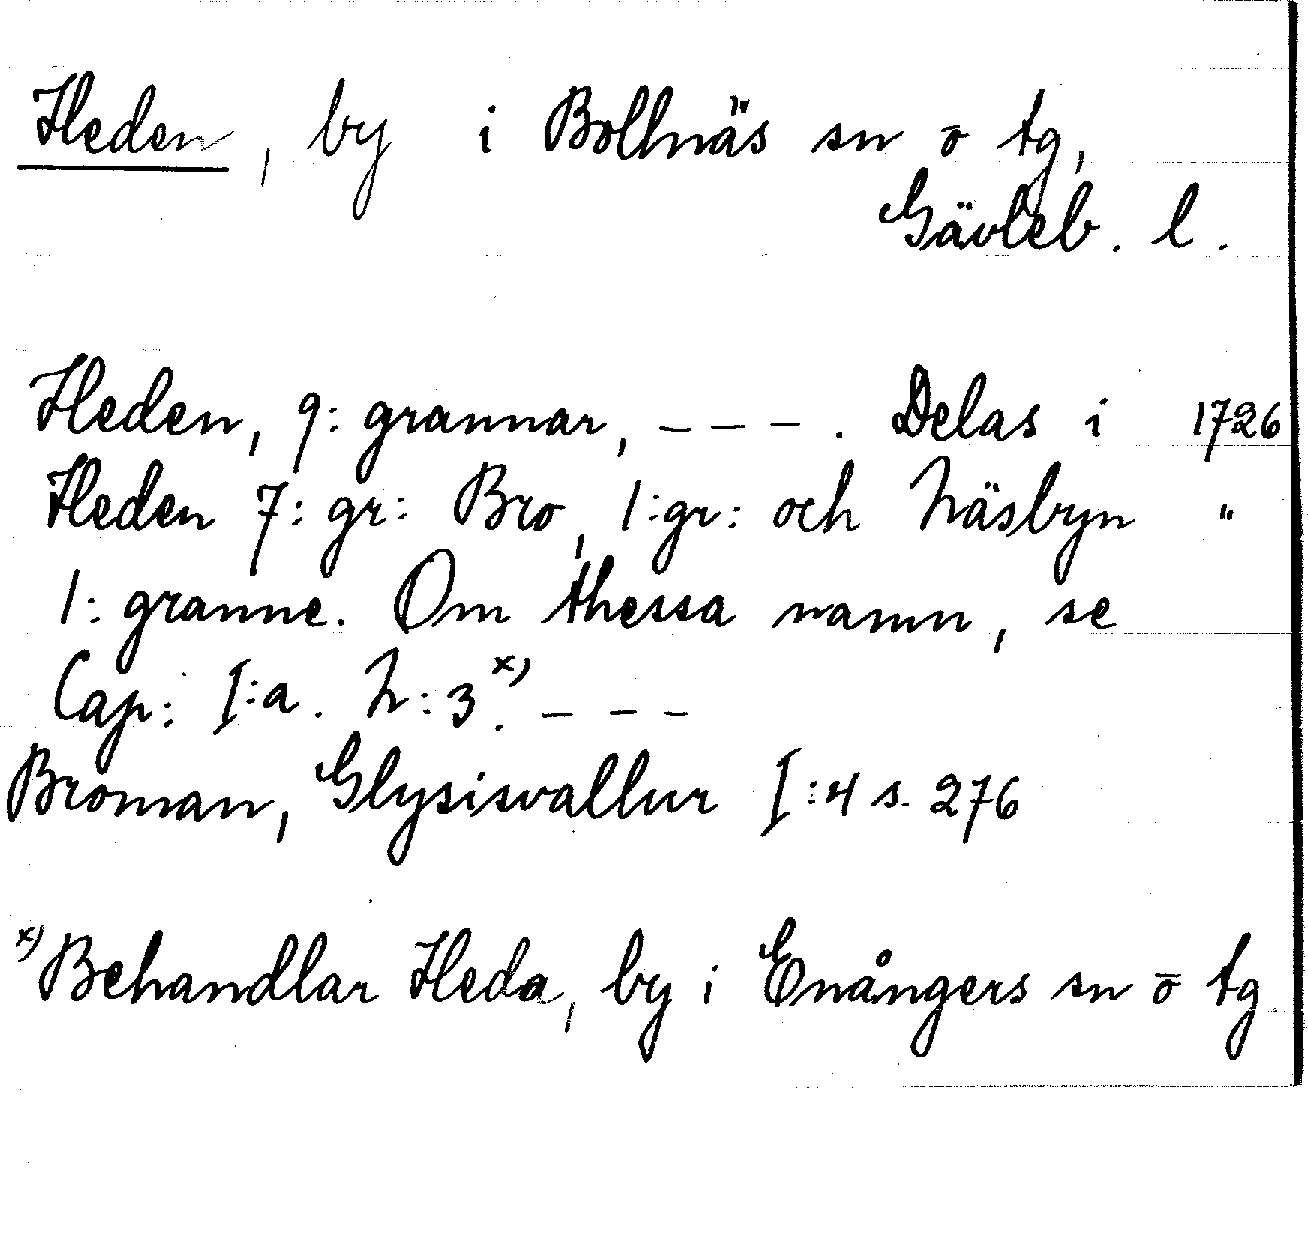 Heden, by i Bollnäs sn o tg,
Gävleb. l.
Heden, 9: grannar, – – – . Delas i 1726
Heden 7: gr: Bro, 1: gr: och Näsbyn "
1: granne. Om thessa namn, se
Cap: I:a. N: 3.x) – – –
Broman, Glysisvallur I:4 s. 276
x) Behandlar Heda, by i Enångers sn o tg